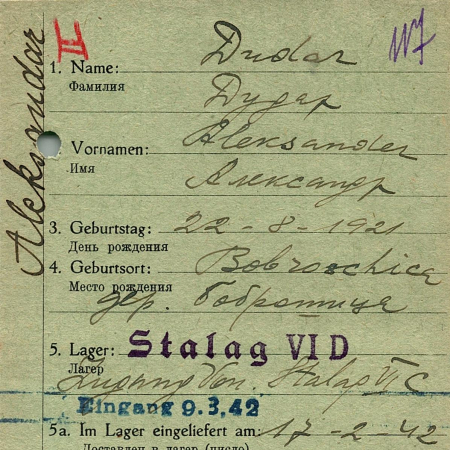 Aleksandar
II
1. Name: Dudar
Фамилия Дудар
Vornamen: Aleksander
Имя Александр
3. Geburtstag: 22-8-1921
День рождения
4. Geburtsort: Bobrowschica
Место рождения дер. Бобротица
5. Lager: Stalag VI D
Лагер Zugang Von. Stalag VI C
Eingang 9.3.42
5a. Im Lager eingeliefert am: 17-2-42
Доставлен в лагер (число)